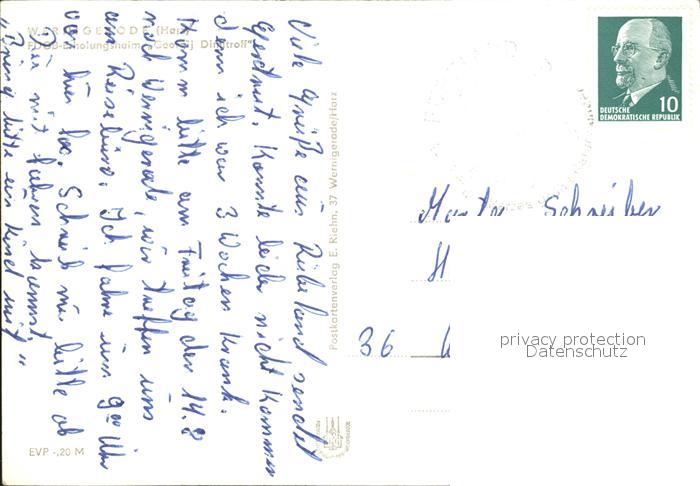 WERNIGERODE (Harz)
FDGB-Erholungsheim „Georgij Dimitroff“
Viele Grüße aus Rübeland sendet
Gertrud. Konnte leider nicht kommen
denn ich war 3 Wochen krank.
Komm bitte am Freitag den 14.8
nach Wernigerode, wir treffen uns
am Reisebüro. Ich fahre um 9 00 Uhr
von hier los. Schreib mir bitte ob
Du mit fahren kannst.
„Bring bitte ein Kind mit“
EVP -,20 M
Postkartenverlag E. Riehn, 37 Wernigerode/Harz
DEUTSCHE
DEMOKRATISCHE REPUBLIK
10
Schreiber
36
privacy protection
Datenschutz